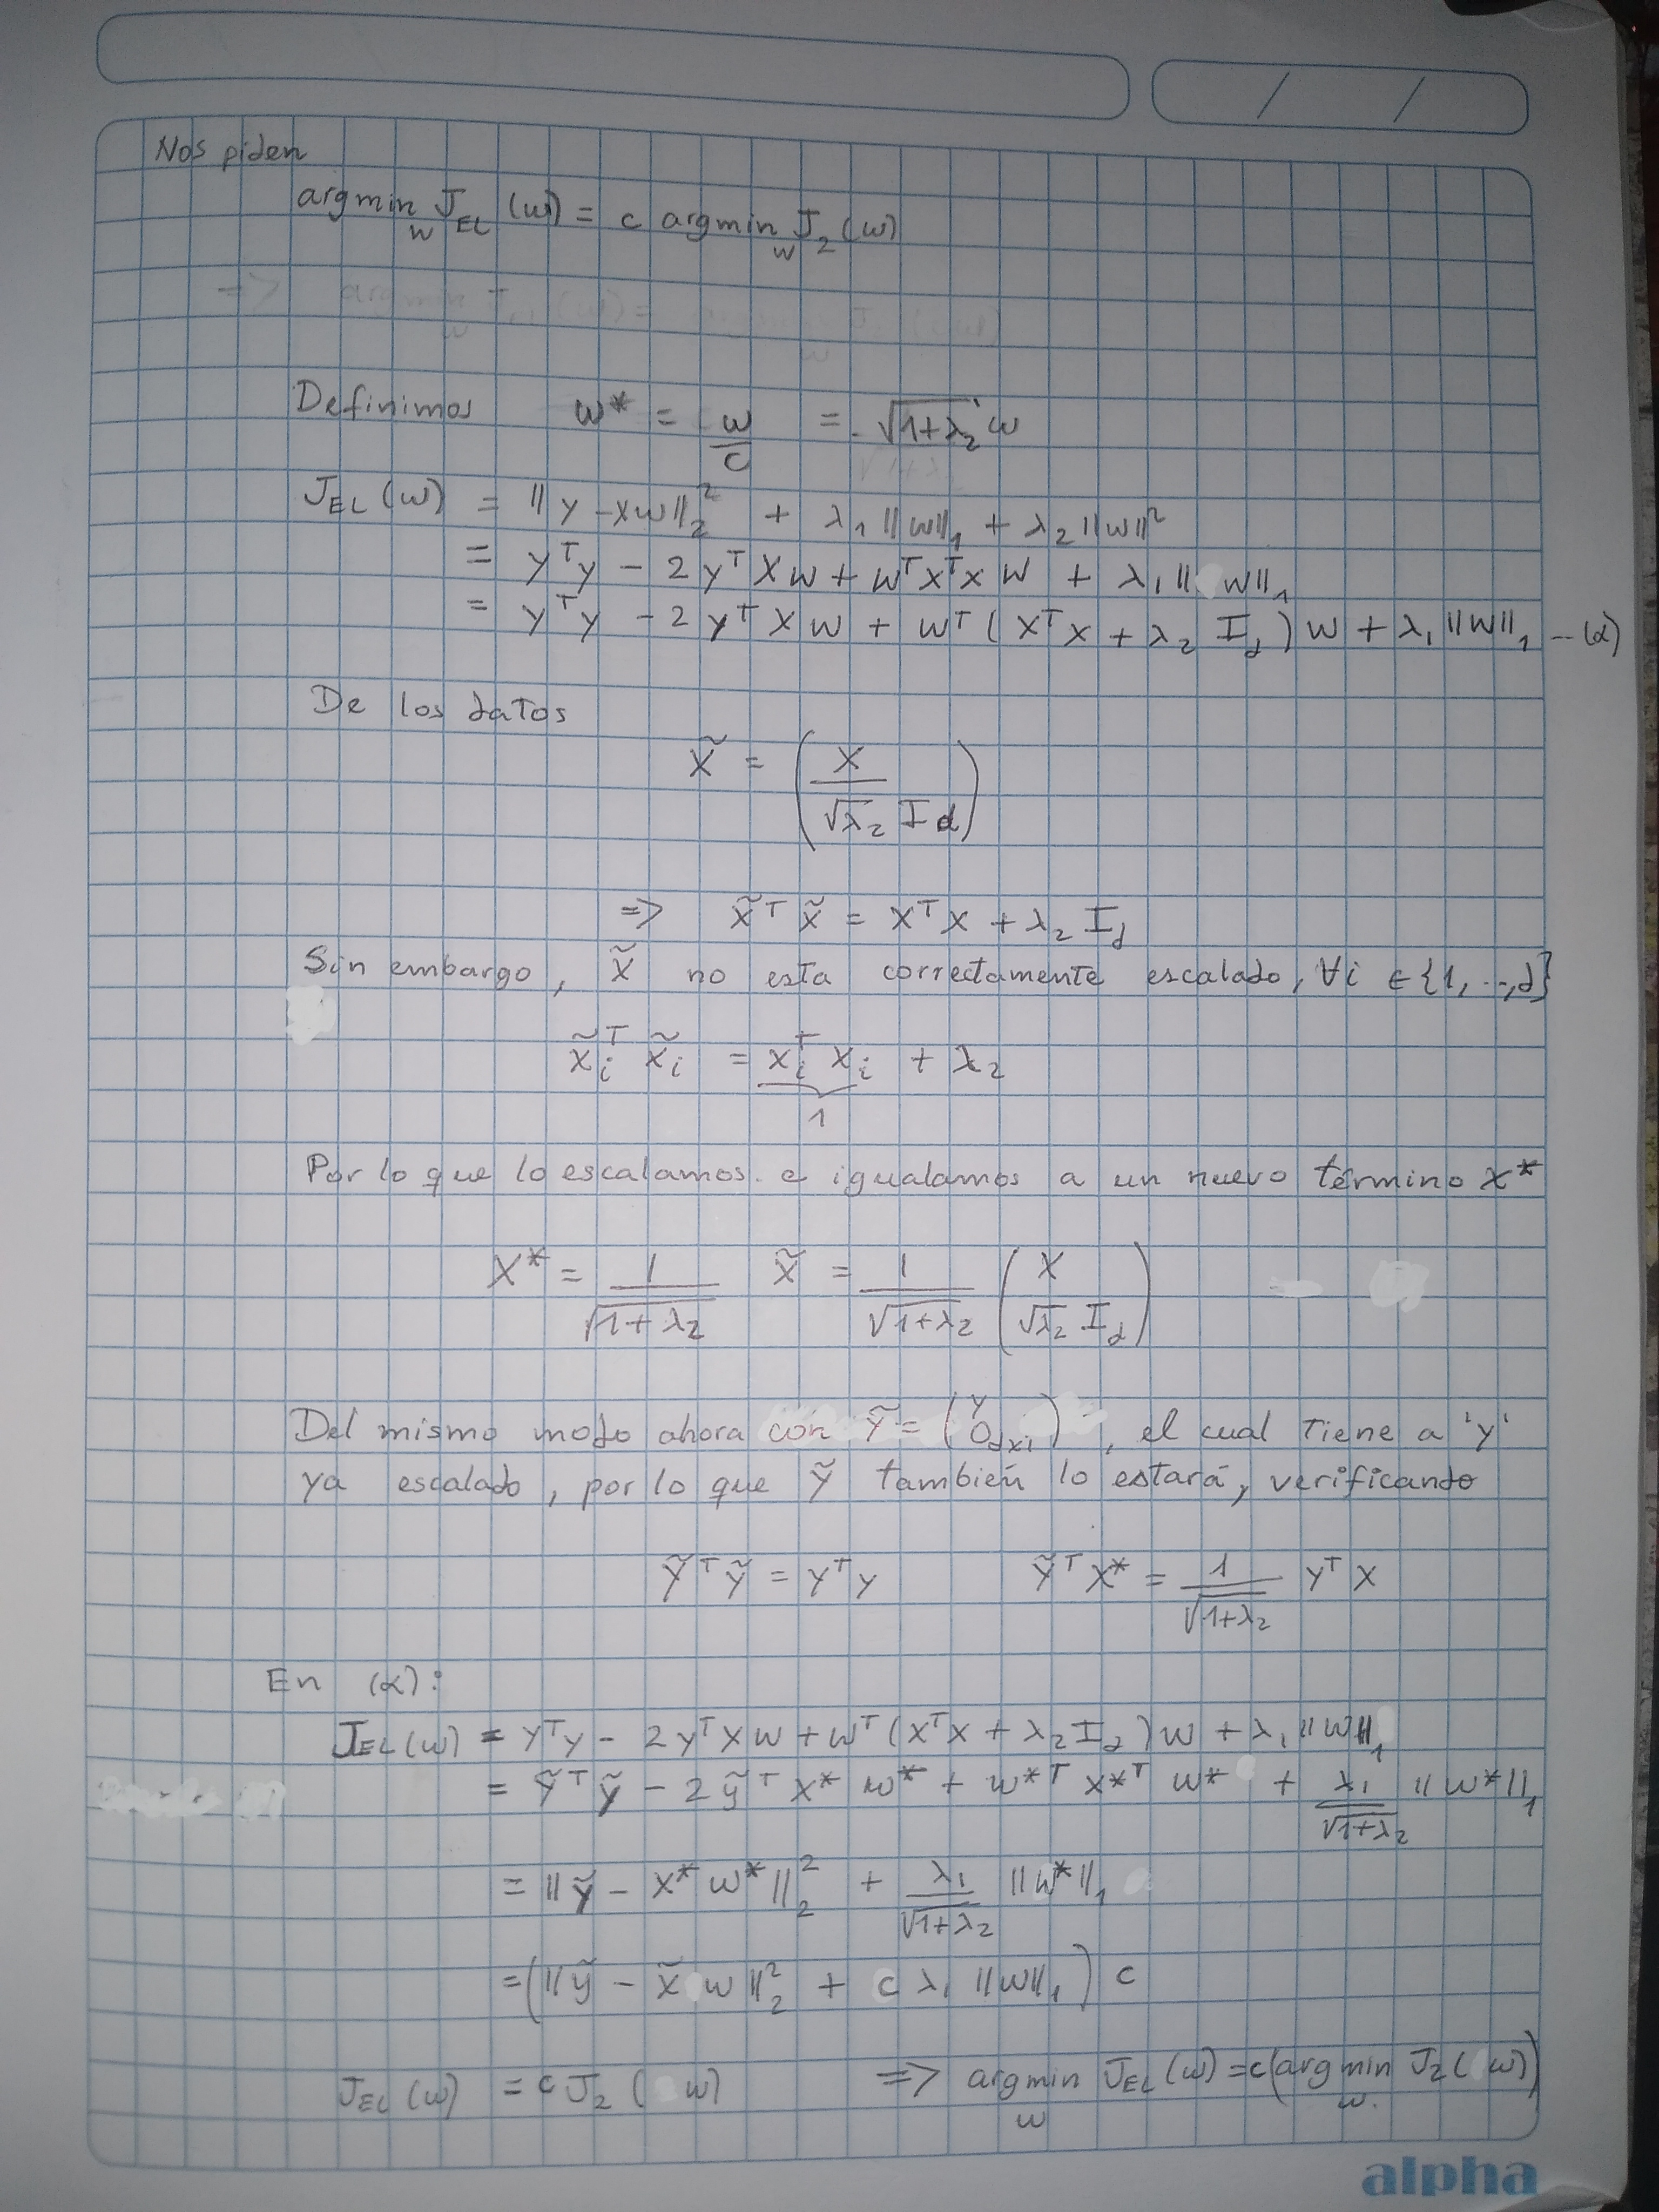 Nos piden
argmin_w J_EL (w) = c argmin_w J_2 (w)
=> argmin_w
Definimos w* = w/c = √(1+λ_2) w
J_EL (w) = ||y - xw||_2^2 + λ_1 ||w||_1 + λ_2 ||w||^2
= y^T y - 2 y^T X w + w^T x^T x w + λ_1 || w||_1
= y^T y - 2 y^T X w + w^T ( x^T x + λ_2 I_d ) w + λ_1 ||w||_1 --(α)
De los datos
x̃ = ( x / √λ_2 I d )
=> x̃^T x̃ = x^T x + λ_2 I_d
Sin embargo, x̃ no esta correctamente escalado, ∀i ∈ {1, ..., d}
x̃_i^T x̃_i = x_i^T x_i + λ_2
1
Por lo que lo escalamos e igualamos a un nuevo término x*
x* = 1/√(1+λ_2) x̃ = 1/√(1+λ_2) ( x / √λ_2 I_d )
Del mismo modo ahora con ỹ = ( y / 0_dx1 ) , el cual tiene a 'y'
ya escalado, por lo que ỹ también lo estará, verificando
ỹ^T ỹ = y^T y ỹ^T x* = 1/√(1+λ_2) y^T x
En (α):
J_EL (w) = y^T y - 2 y^T x w + w^T (x^T x + λ_2 I_d ) w + λ_1 ||w||_1
= ỹ^T ỹ - 2 ỹ^T x* w* + w*^T x*^T w* + λ_1/√(1+λ_2) ||w*||_1
= ||ỹ - x* w*||_2^2 + λ_1/√(1+λ_2) ||w*||_1
= ( ||ỹ - x̃ w||_2^2 + c λ_1 ||w||_1 ) c
J_EL (w) = c J_2 ( w) => argmin_w J_EL (w) = c(argmin_w J_2 ( w)
alpha